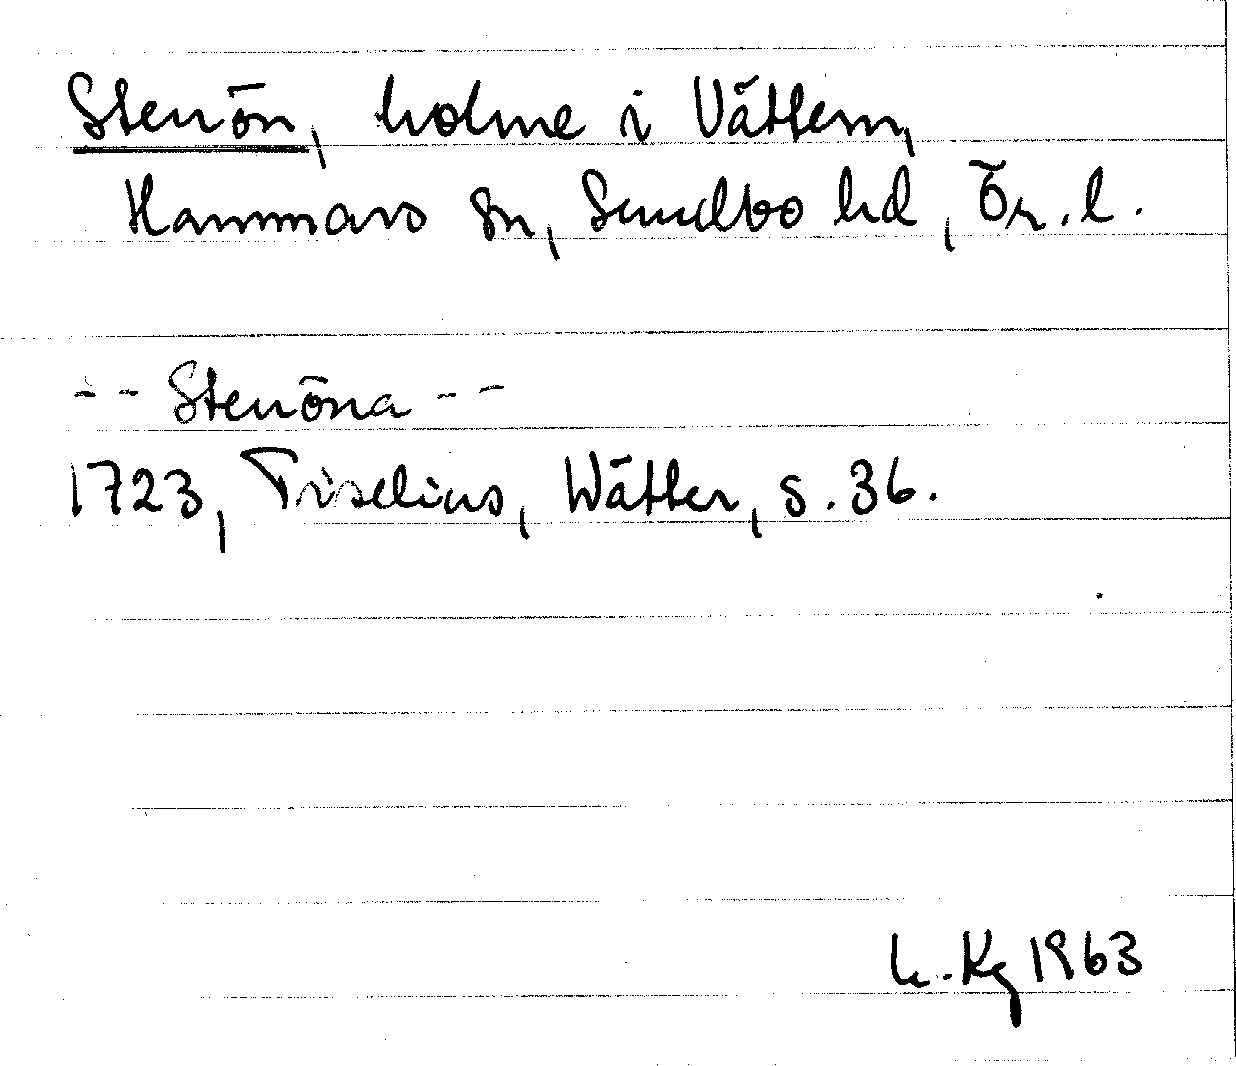 Stenön, holme i Vättern,
Hammars sn, Sundbo hd, Ör. l.
-- Stenöna --
1723, Tiselius, Wätter, s. 36.
Kg 1963